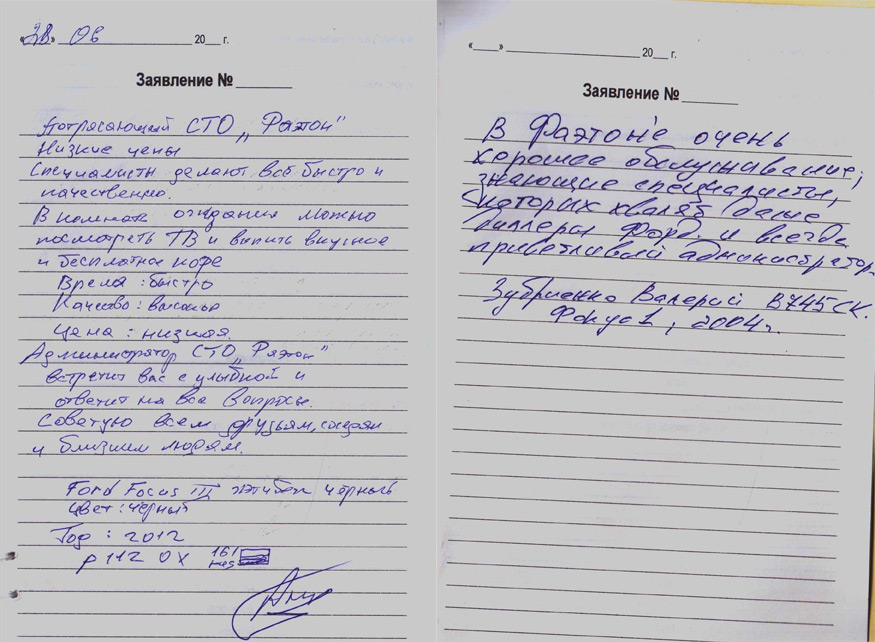 «28» 06 20__ г.
Заявление №
Потрясающий СТО „Фаэтон"
Низкие цены
Специалисты делают всё быстро и
качественно.
В комнате ожидания можно
посмотреть ТВ и выпить вкусное
и бесплатное кофе
Время : быстро
Качество : высокое
Цена : низкая.
Администратор СТО „Фаэтон"
встретит вас с улыбкой и
ответит на все вопросы.
Советую всем друзьям, соседям
и близким людям.
Ford Focus III хэтчбек чёрный
Цвет : чёрный
Год : 2012
р 112 ох 161
« » 20__ г.
Заявление №
В Фаэтон'е очень
хорошее обслуживание;
знающие специалисты,
которых хвалят даже
диллеры Форд, и всегда
приветливый администратор.
Зубриенко Валерий В745СК.
Фокус 1, 2004г.